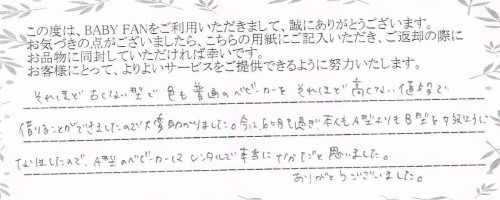 この度は、BABY FANをご利用いただきまして、誠にありがとうございます。
お気づきの点がございましたら、こちらの用紙にご記入いただき、ご返却の際に
お品物に同封していただければ幸いです。
お客様にとって、よりよいサービスをご提供できるように努力いたします。
それほど古くない型で色も普通のベビーカーを それほど高くない値段で
借りることができましたので大変助かりました。今は6ヶ月も過ぎ本人もA型よりもB型を好むように
なりましたので、A型のベビーカーはレンタルで本当に十分だと思いました。
ありがとうございました。